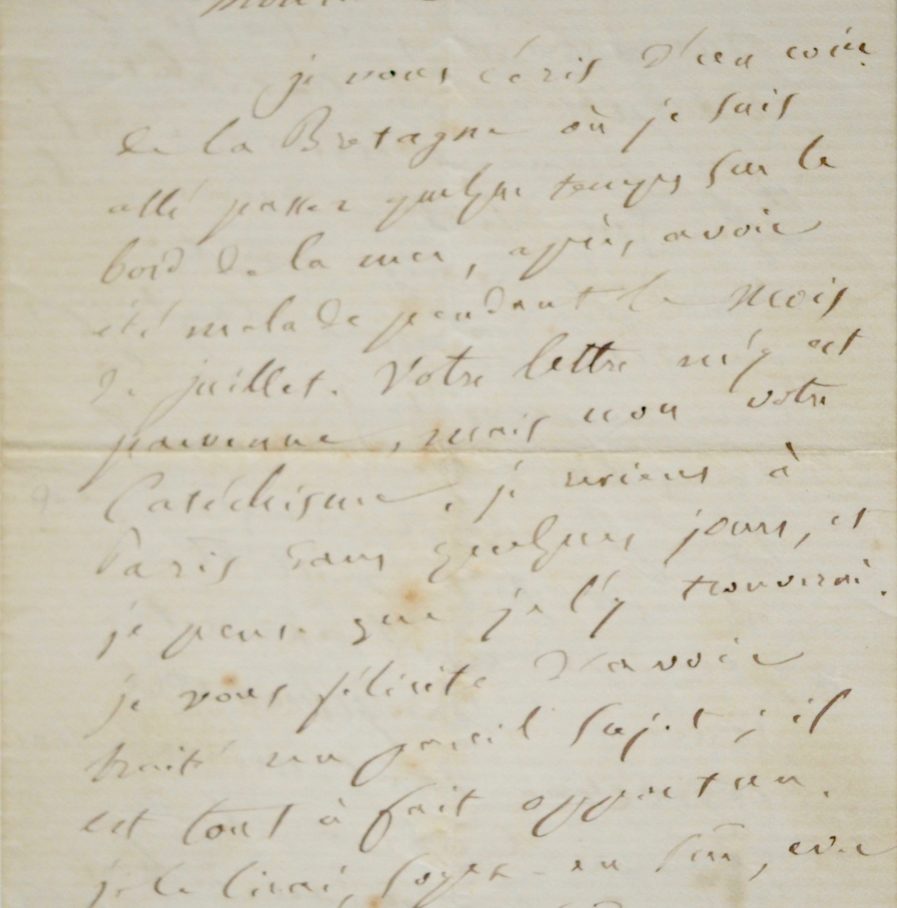 je vous écris d'un coin
de la Bretagne où je suis
allé passer quelque temps sur le
bord de la mer, après avoir
été malade pendant le mois
de juillet. Votre lettre m'y est
parvenue, mais non votre
Catéchisme, je reviens à
Paris dans quelques jours, et
je pense que je l'y trouverai.
je vous félicite d'avoir
traité un pareil sujet ; il
est tout à fait opportun.
je le lirai, soyez-en sûr, avec